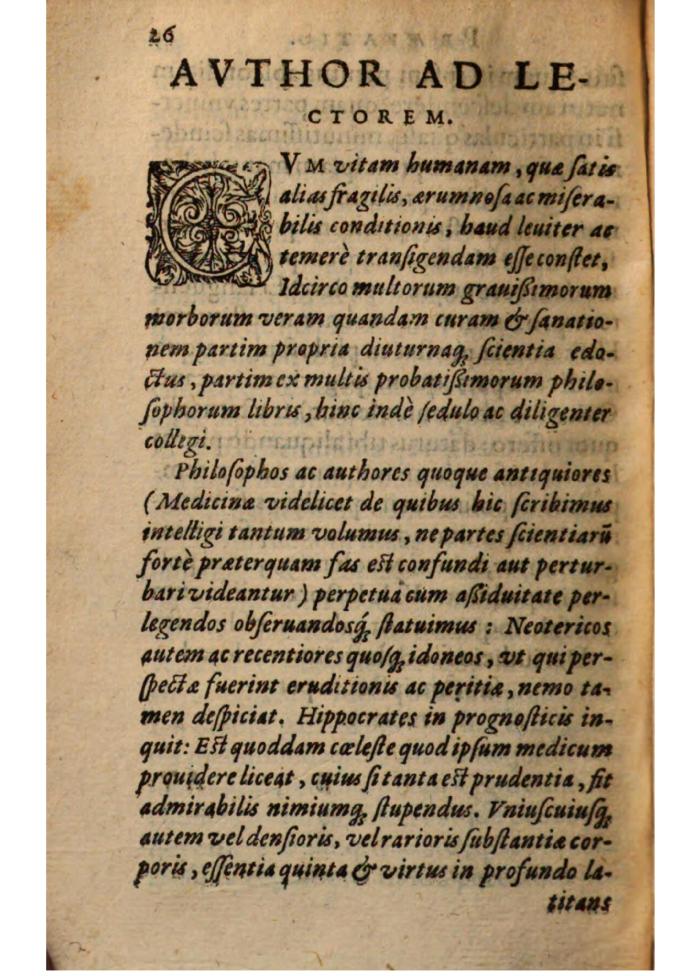 26
AVTHOR AD LE-
CTOREM.
CVM vitam humanam, quæ ſatis
alias fragilis, ærumnoſa ac miſera-
bilis conditionis, haud leuiter ac
temerè tranſigendam eſſe conſtet,
Idcirco multorum grauißimorum
morborum veram quandam curam & ſanatio-
nem partim propria diuturnaq́; ſcientia edo-
ctus, partim ex multis probatißimorum philo-
ſophorum libris, hinc indè ſedulo ac diligenter
collegi.
Philoſophos ac authores quoque antiquiores
(Medicinæ videlicet de quibus hic ſcribimus
intelligi tantum volumus, ne partes ſcientiarū
fortè præterquam fas eſt confundi aut pertur-
bari videantur) perpetua cum aßiduitate per-
legendos obſeruandosq́; ſtatuimus: Neotericos
autem ac recentiores quoſq; idoneos, vt qui per-
ſpectæ fuerint eruditionis ac peritiæ, nemo ta-
men deſpiciat. Hippocrates in prognoſticis in-
quit: Eſt quoddam cæleſte quod ipſum medicum
prouidere liceat, cuius ſi tanta eſt prudentia, fit
admirabilis nimiumq; ſtupendus. Vniuſcuiuſq;
autem vel denſioris, vel rarioris ſubſtantiæ cor-
poris, eſſentia quinta & virtus in profundo la-
titans